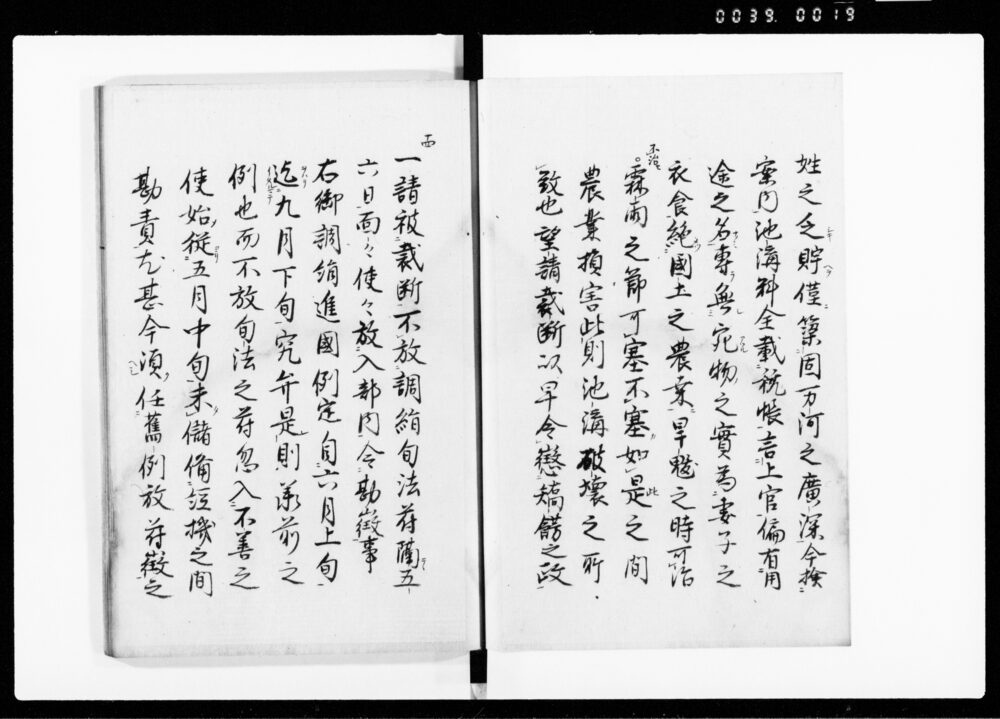 0039 0019
姓之乏貯僅築固万河之廣深今撿
案内池溝料全載税帳言上官偏有用
途之名専無宛物之實為妻子之
衣食絶國土之農業旱魃之時可治
不治霖雨之節可塞不塞如是之間
農業損害此則池溝破壊之所
致也望請裁断以早令懲矯餝之政
一請被裁断不放調絹旬法符
六日面々使々放入部内令勘徴事
右御調絹進國例定自六月上旬
迄九月下旬究弁是則承前之
例也而不放旬法之符忽入不善之
使始従五月中旬未儲備絍機之間
勘責尤甚今須任舊例放符徴之